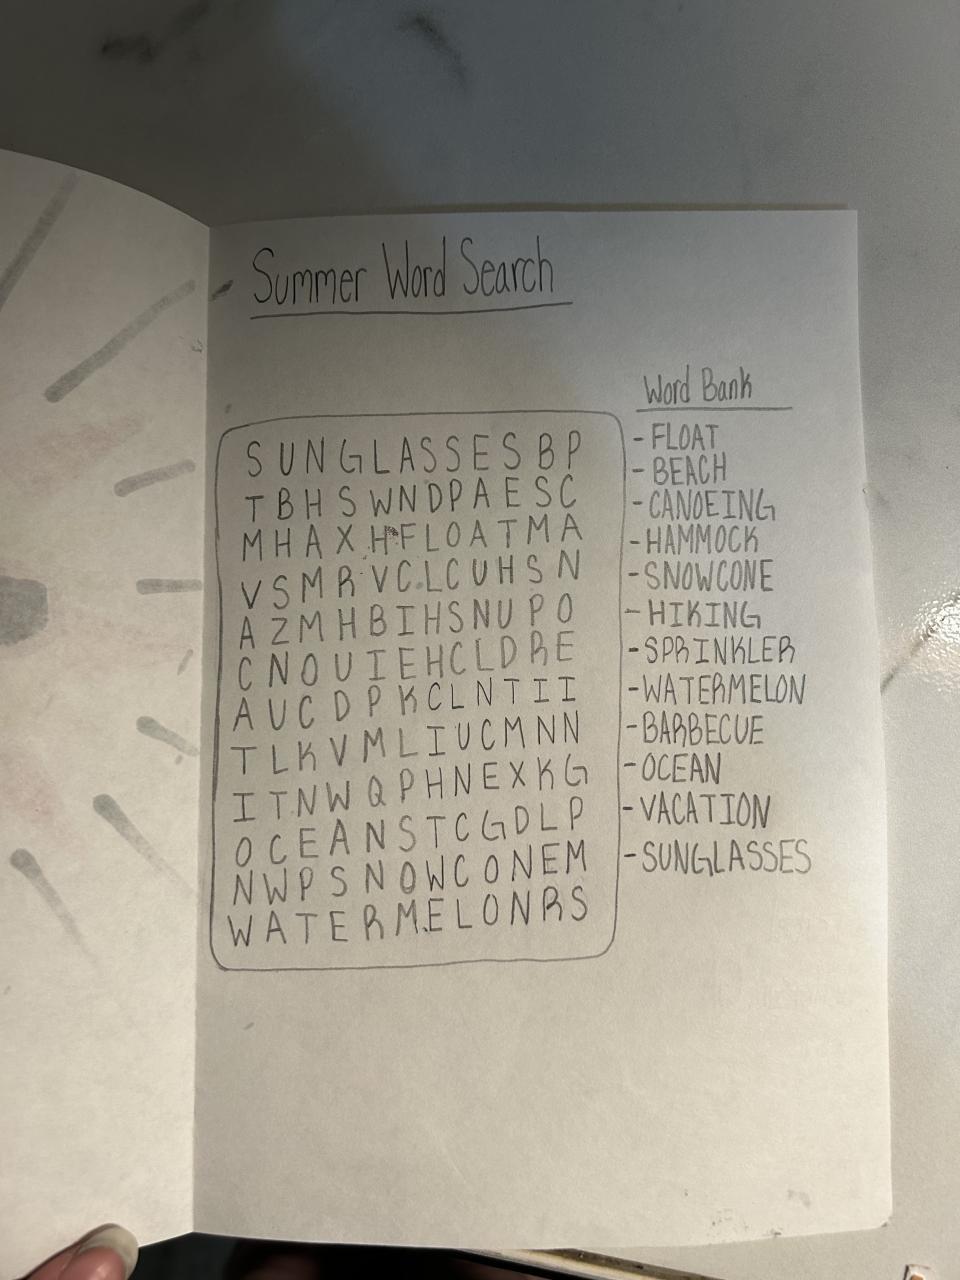 Summer Word Search
S U N G L A S S E S B P
T B H S W N D P A E S C
M H A X H F L O A T M A
V S M R V C L C U H S N
A Z M H B I H S N U P O
C N O U I E H C L D R E
A U C D P K C L N T I I
T L K V M L I U C M N N
I T N W Q P H N E X K G
O C E A N S T C G D L P
N W P S N O W C O N E M
W A T E R M E L O N R S
Word Bank
- FLOAT
- BEACH
- CANOEING
- HAMMOCK
- SNOWCONE
- HIKING
- SPRINKLER
- WATERMELON
- BARBECUE
- OCEAN
- VACATION
- SUNGLASSES